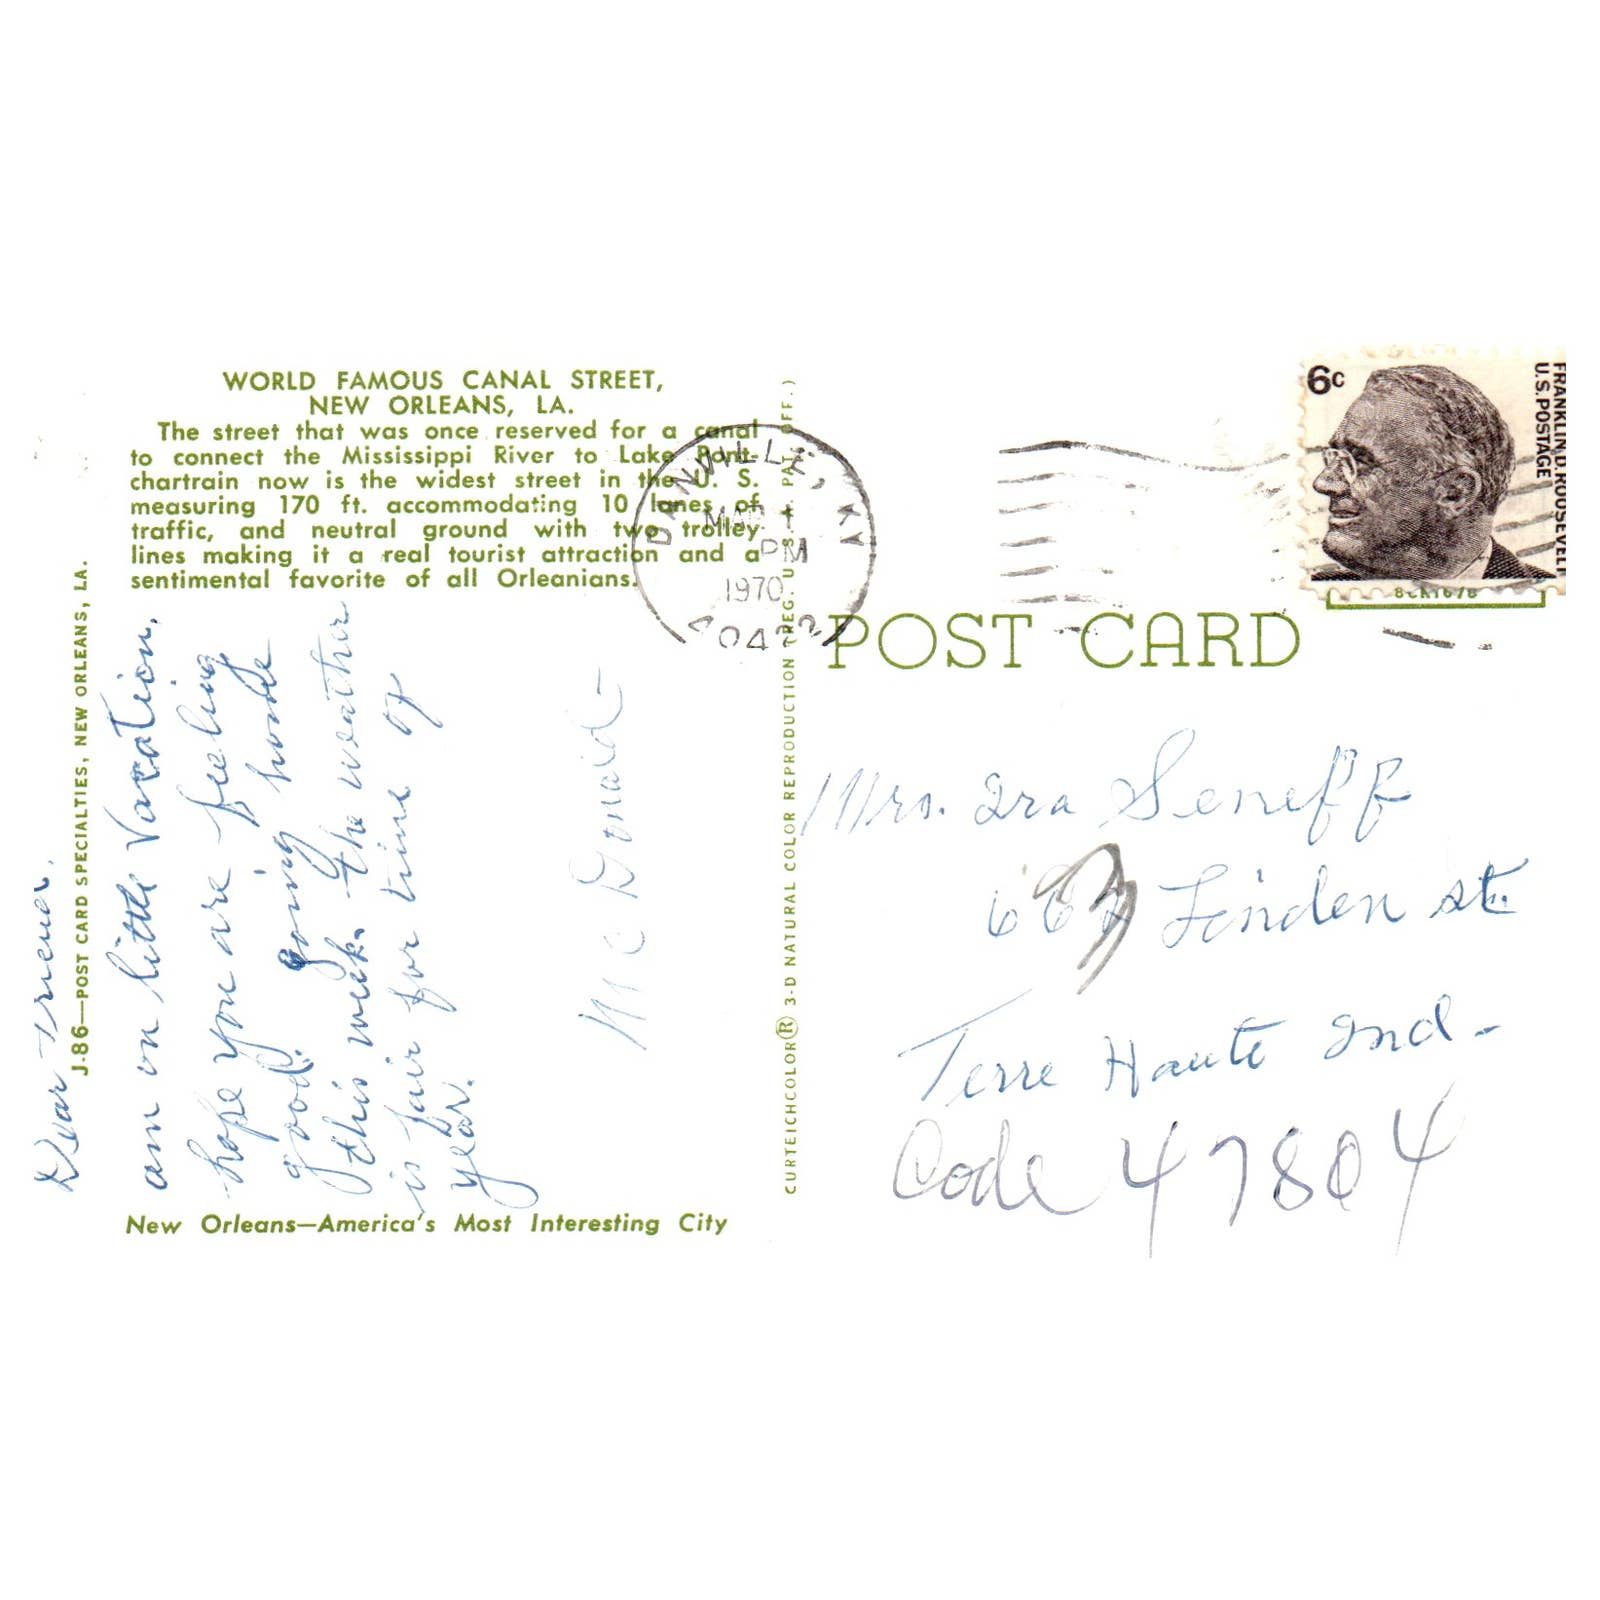 WORLD FAMOUS CANAL STREET,
NEW ORLEANS, LA.
The street that was once reserved for a canal
to connect the Mississippi River to Lake Pont-
chartrain now is the widest street in the U. S.
measuring 170 ft. accommodating 10 lanes of
traffic, and neutral ground with two trolley
lines making it a real tourist attraction and a
sentimental favorite of all Orleanians.
J-86—POST CARD SPECIALTIES, NEW ORLEANS, LA.
Dear Irene,
am on little Vacation,
hope you are feeling
good. going home
this week. the weather
is fair for time of
year.
Mc Donald-
New Orleans—America's Most Interesting City
CURTEICHCOLOR® 3-D NATURAL COLOR REPRODUCTION (REG. U.S.A. PAT. OFF.)
DANVILLE, KY
MAR
PM
1970
40422
6c
FRANKLIN D. ROOSEVELT
U.S. POSTAGE
POST CARD
Mrs. Ira Seneff
Linden st.
Terre Haute Ind-
Code 47804